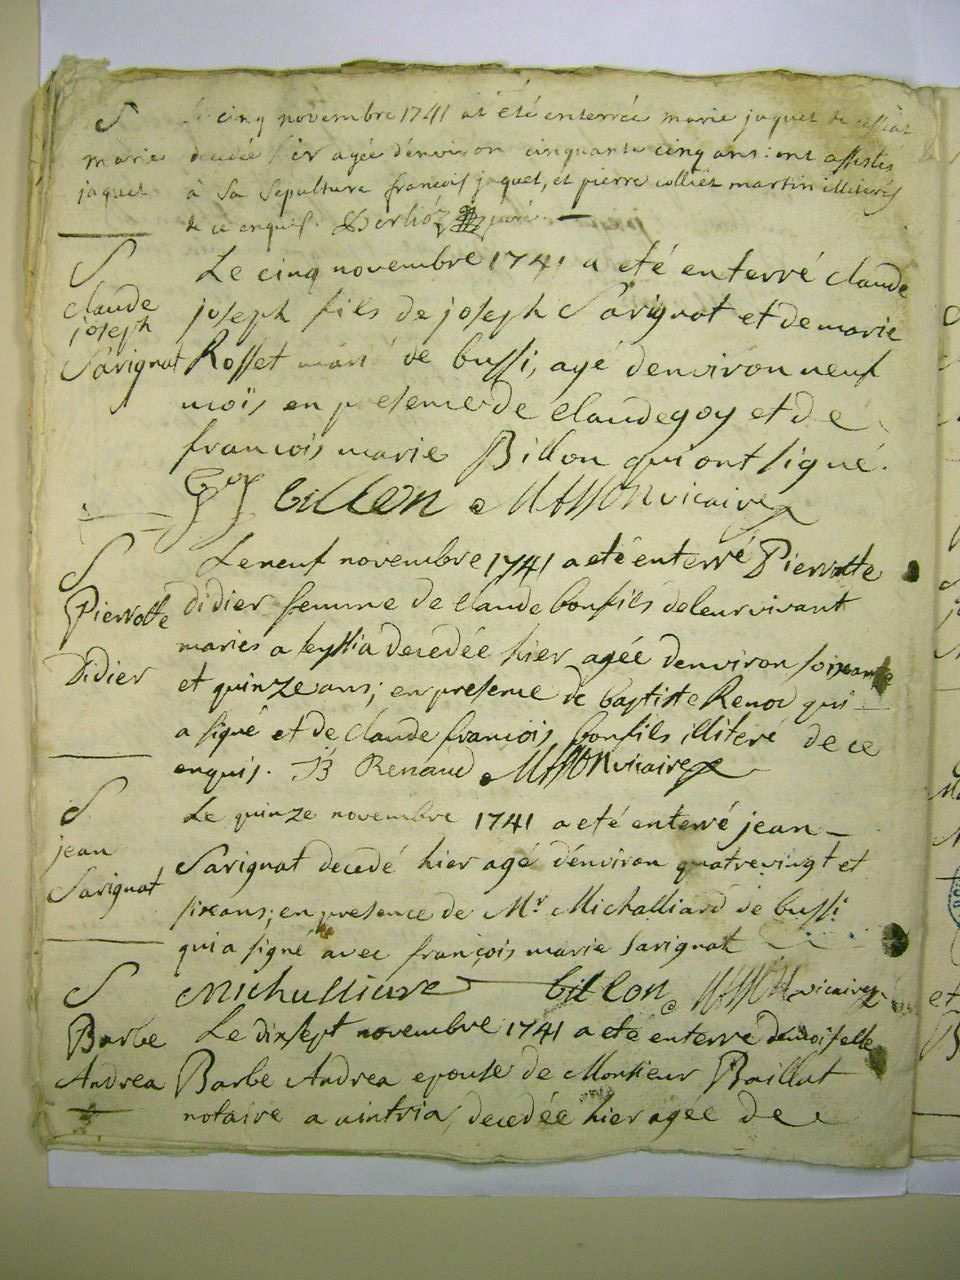 S
marie
jaquet
cinq novembre 1741 at été enterrée marie jaquet
decedé hier agée denviron cinquante cinq ans: ont assistés
à sa sepulture francois jaquet, et pierre colliet martin illiterés
de ce enquis. Berlioz curé
S
claude
joseph
Sarignat
Le cinq novembre 1741 a eté enterré claude
joseph fils de joseph Sarignat et de marie
Rosset de bussi, agé denviron neuf
moïs en presence de claude goy et de
francois marie Billon qui ont signé.
Goy billon Masson vicaire
S
Pierrotte
Didier
Le neuf novembre 1741 a eté enterré Pierrotte
didier femme de claude bonfils de leur vivant
mariés a decedée hier agée denviron soixante
et quinze ans; en presence de baptiste Renod qui
a signé et de claude francois bonfils illiteré de ce
enquis. B Renaud Masson vicaire
S
jean
Sarignat
Le quinze novembre 1741 a eté enterré jean
Sarignat decedé hier agé d'environ quatrevingt et
six ans; en presence de Mr Michalliard de bussi
qui a signé avec françois marie Sarignat
billon Masson vicaire
S
Barbe
Andrea
Le dixsept novembre 1741 a eté enterré demoiselle
Barbe Andrea epouse de Monsieur Baillat
notaire a uintria, decedée hier agée de